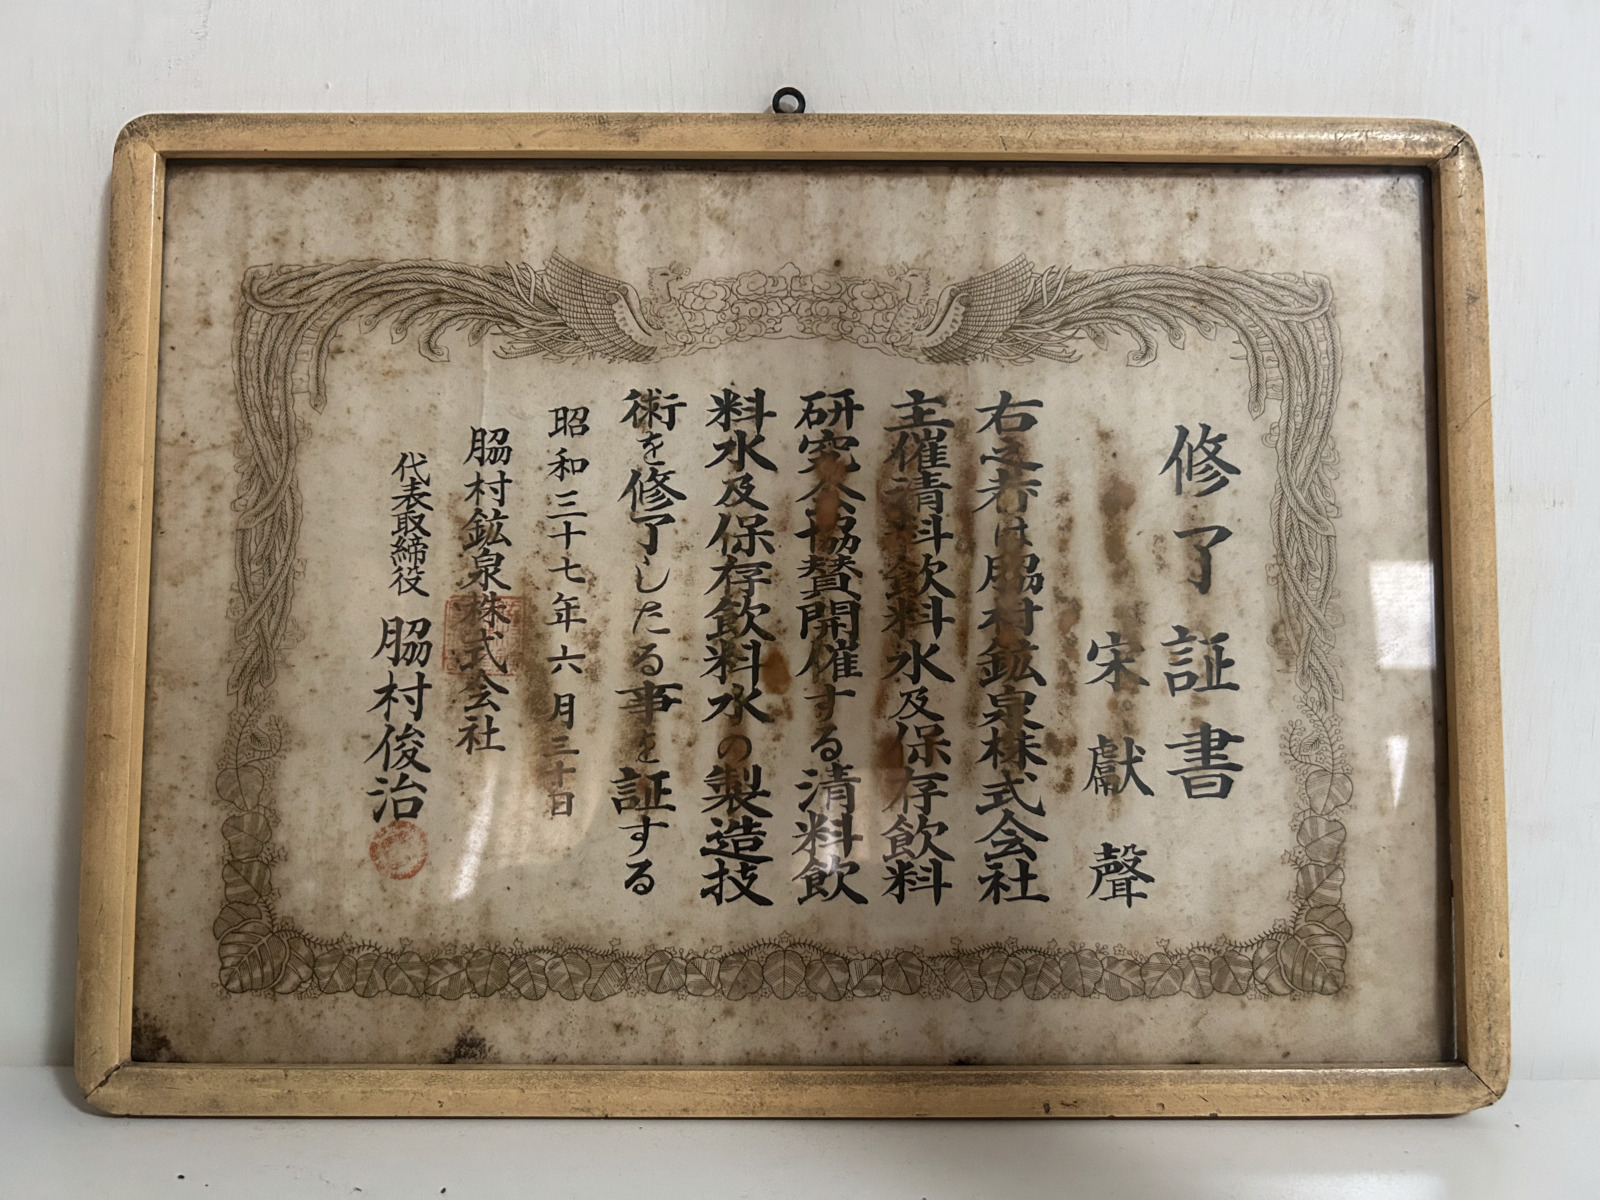 修了証書
宋獻聲
右之者は脇村鉱泉株式会社
主催清料飲料水及保存飲料
研究会協賛開催する清料飲
料水及保存飲料水の製造技
術を修了したる事を証する
昭和三十七年六月三十日
脇村鉱泉株式会社
代表取締役 脇村俊治